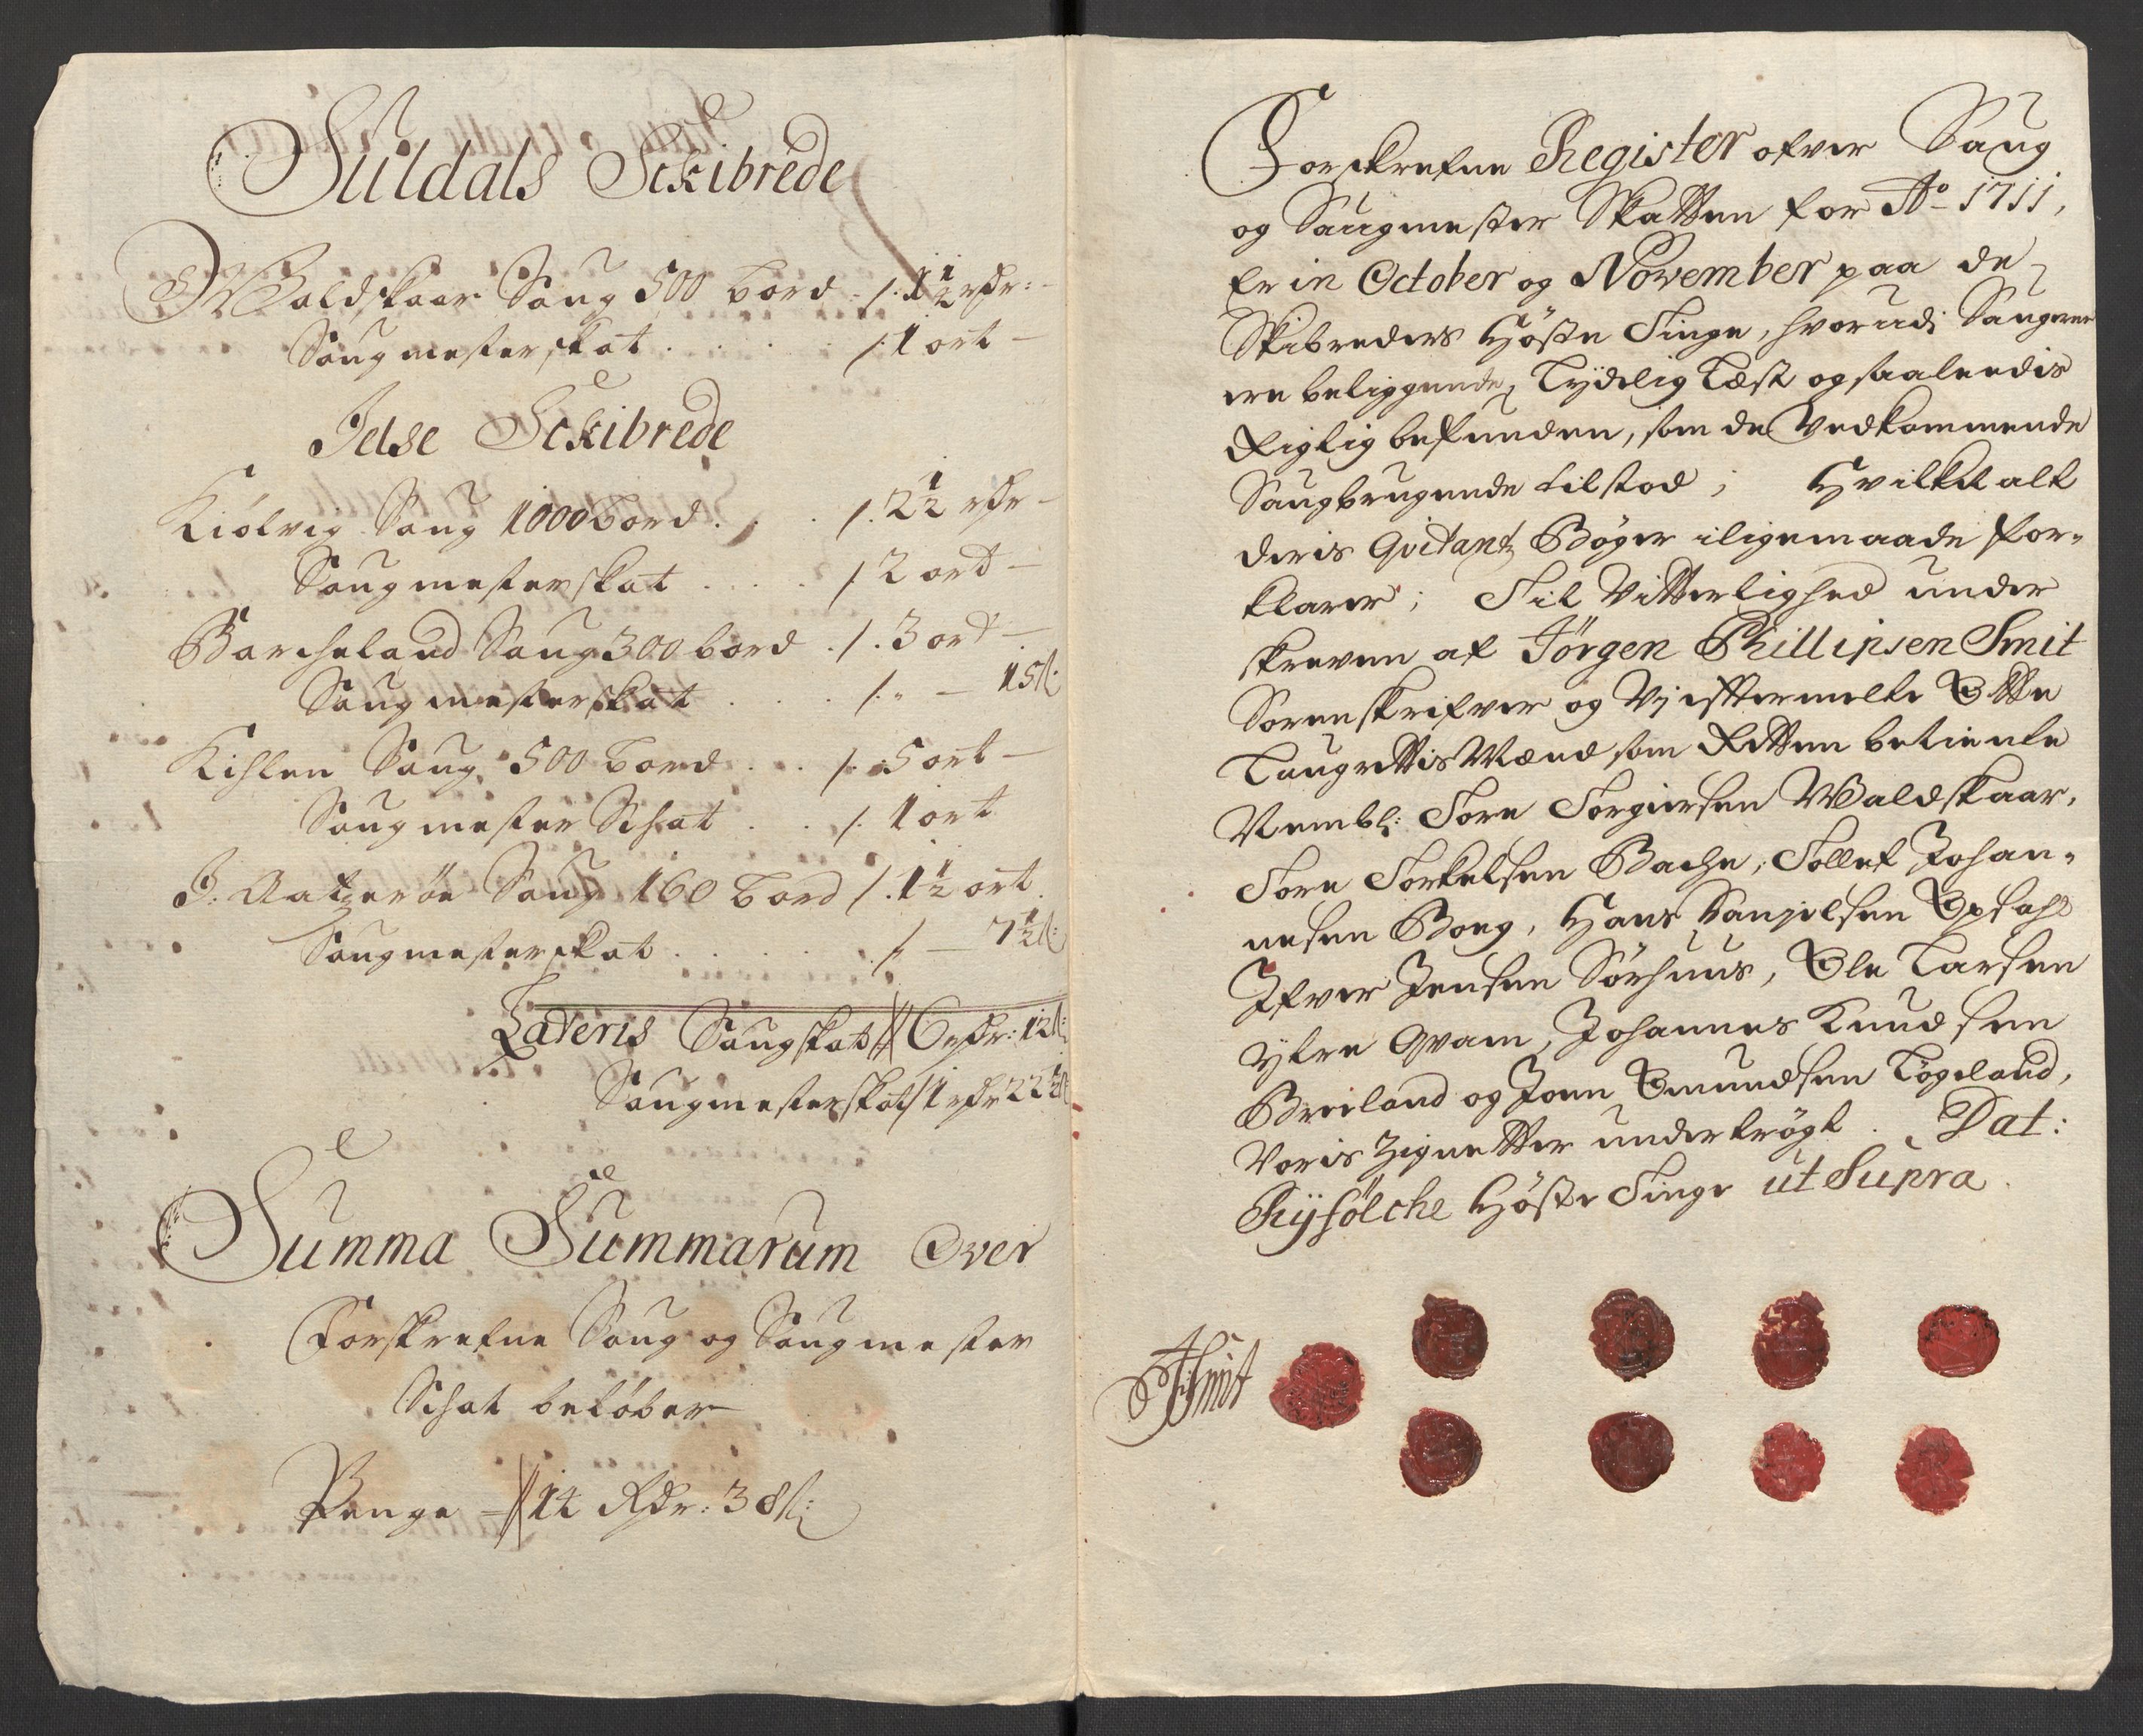 Suldals Sckibrede
Waldskaar Saug 500 bord ./. 1½ rdr:
Saugmesterskat . . . ./. 1 ort –
Jelse Sckibrede
Kiølvig Saug 1000 bord . . ./. 2½ rdr –
Saugmesterskat . . . ./. 2 ort –
Barcheland Saug 300 bord ./. 3 ort –
Saugmesterskat . . . ./. „ – 15 s:
Kihlen Saug 500 bord . . ./. 5 ort –
Saugmester Schat . . ./. 1 ort
J. Aatzerøe Saug 160 bord /. 1½ ort
Saugmesterskat . . . . ./. – 7½ s:
Lateris Saugskat // 6 rdr: 12 s:
Saugmesterskat // 1 rdr 22½ s
Summa Summarum Over
Forskrefne Saug og Saugmester
Schat beløber
Penge – // 14 Rdr: 38 s:
Forskrefne Register ofver Saug
og Saugmester Skatten for Ao 1711,
Er in October og November paa de
Skibreders Høste Tinge, hvorudj Saugerne
ere beliggende, Tydelig Læst og saaleedis
Rigtig befunden, som de Vedkommende
Saugbrugende tilstod; Hvilket alt
deris Qvitantz Bøger iligemaade for-
klarer; Til Vitterlighed under
skreven af Jørgen Phillipsen Smit
Sorenskrifver og Vj efftermelte Otte
Laugrettis Mænd som Retten betiente
Nembl: Tore Torgiersen Waldskaar,
Tore Torkelsen Bache, Tollef Johan-
nesen Boeg, Hans Danjelsen Opsahl
Ifver Jensen Sørhuus, Ole Larsen
Ytre Qvam, Johannes Knudsen
Breiland og Joen Omundsen Løgeland,
Voris Zignetter undertrøgt. Dat:
Ryfølche Høste Tinge ut Supra.
JPSmit